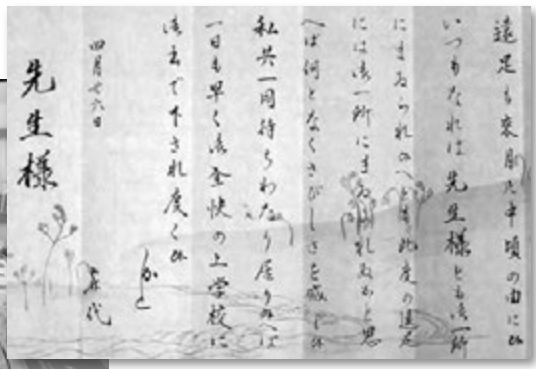 遠足も来月の中頃の由に候
いつもなれば先生様とも御一所
にまゐられ候へども此度の遠足
には御一所にまゐられぬかと思
へば何となくさびしさを感じ候
私共一同待ちわたり居り候へば
一日も早く御全快の上学校に
御出で下され度く候
かしこ
四月廿六日
代
先生様